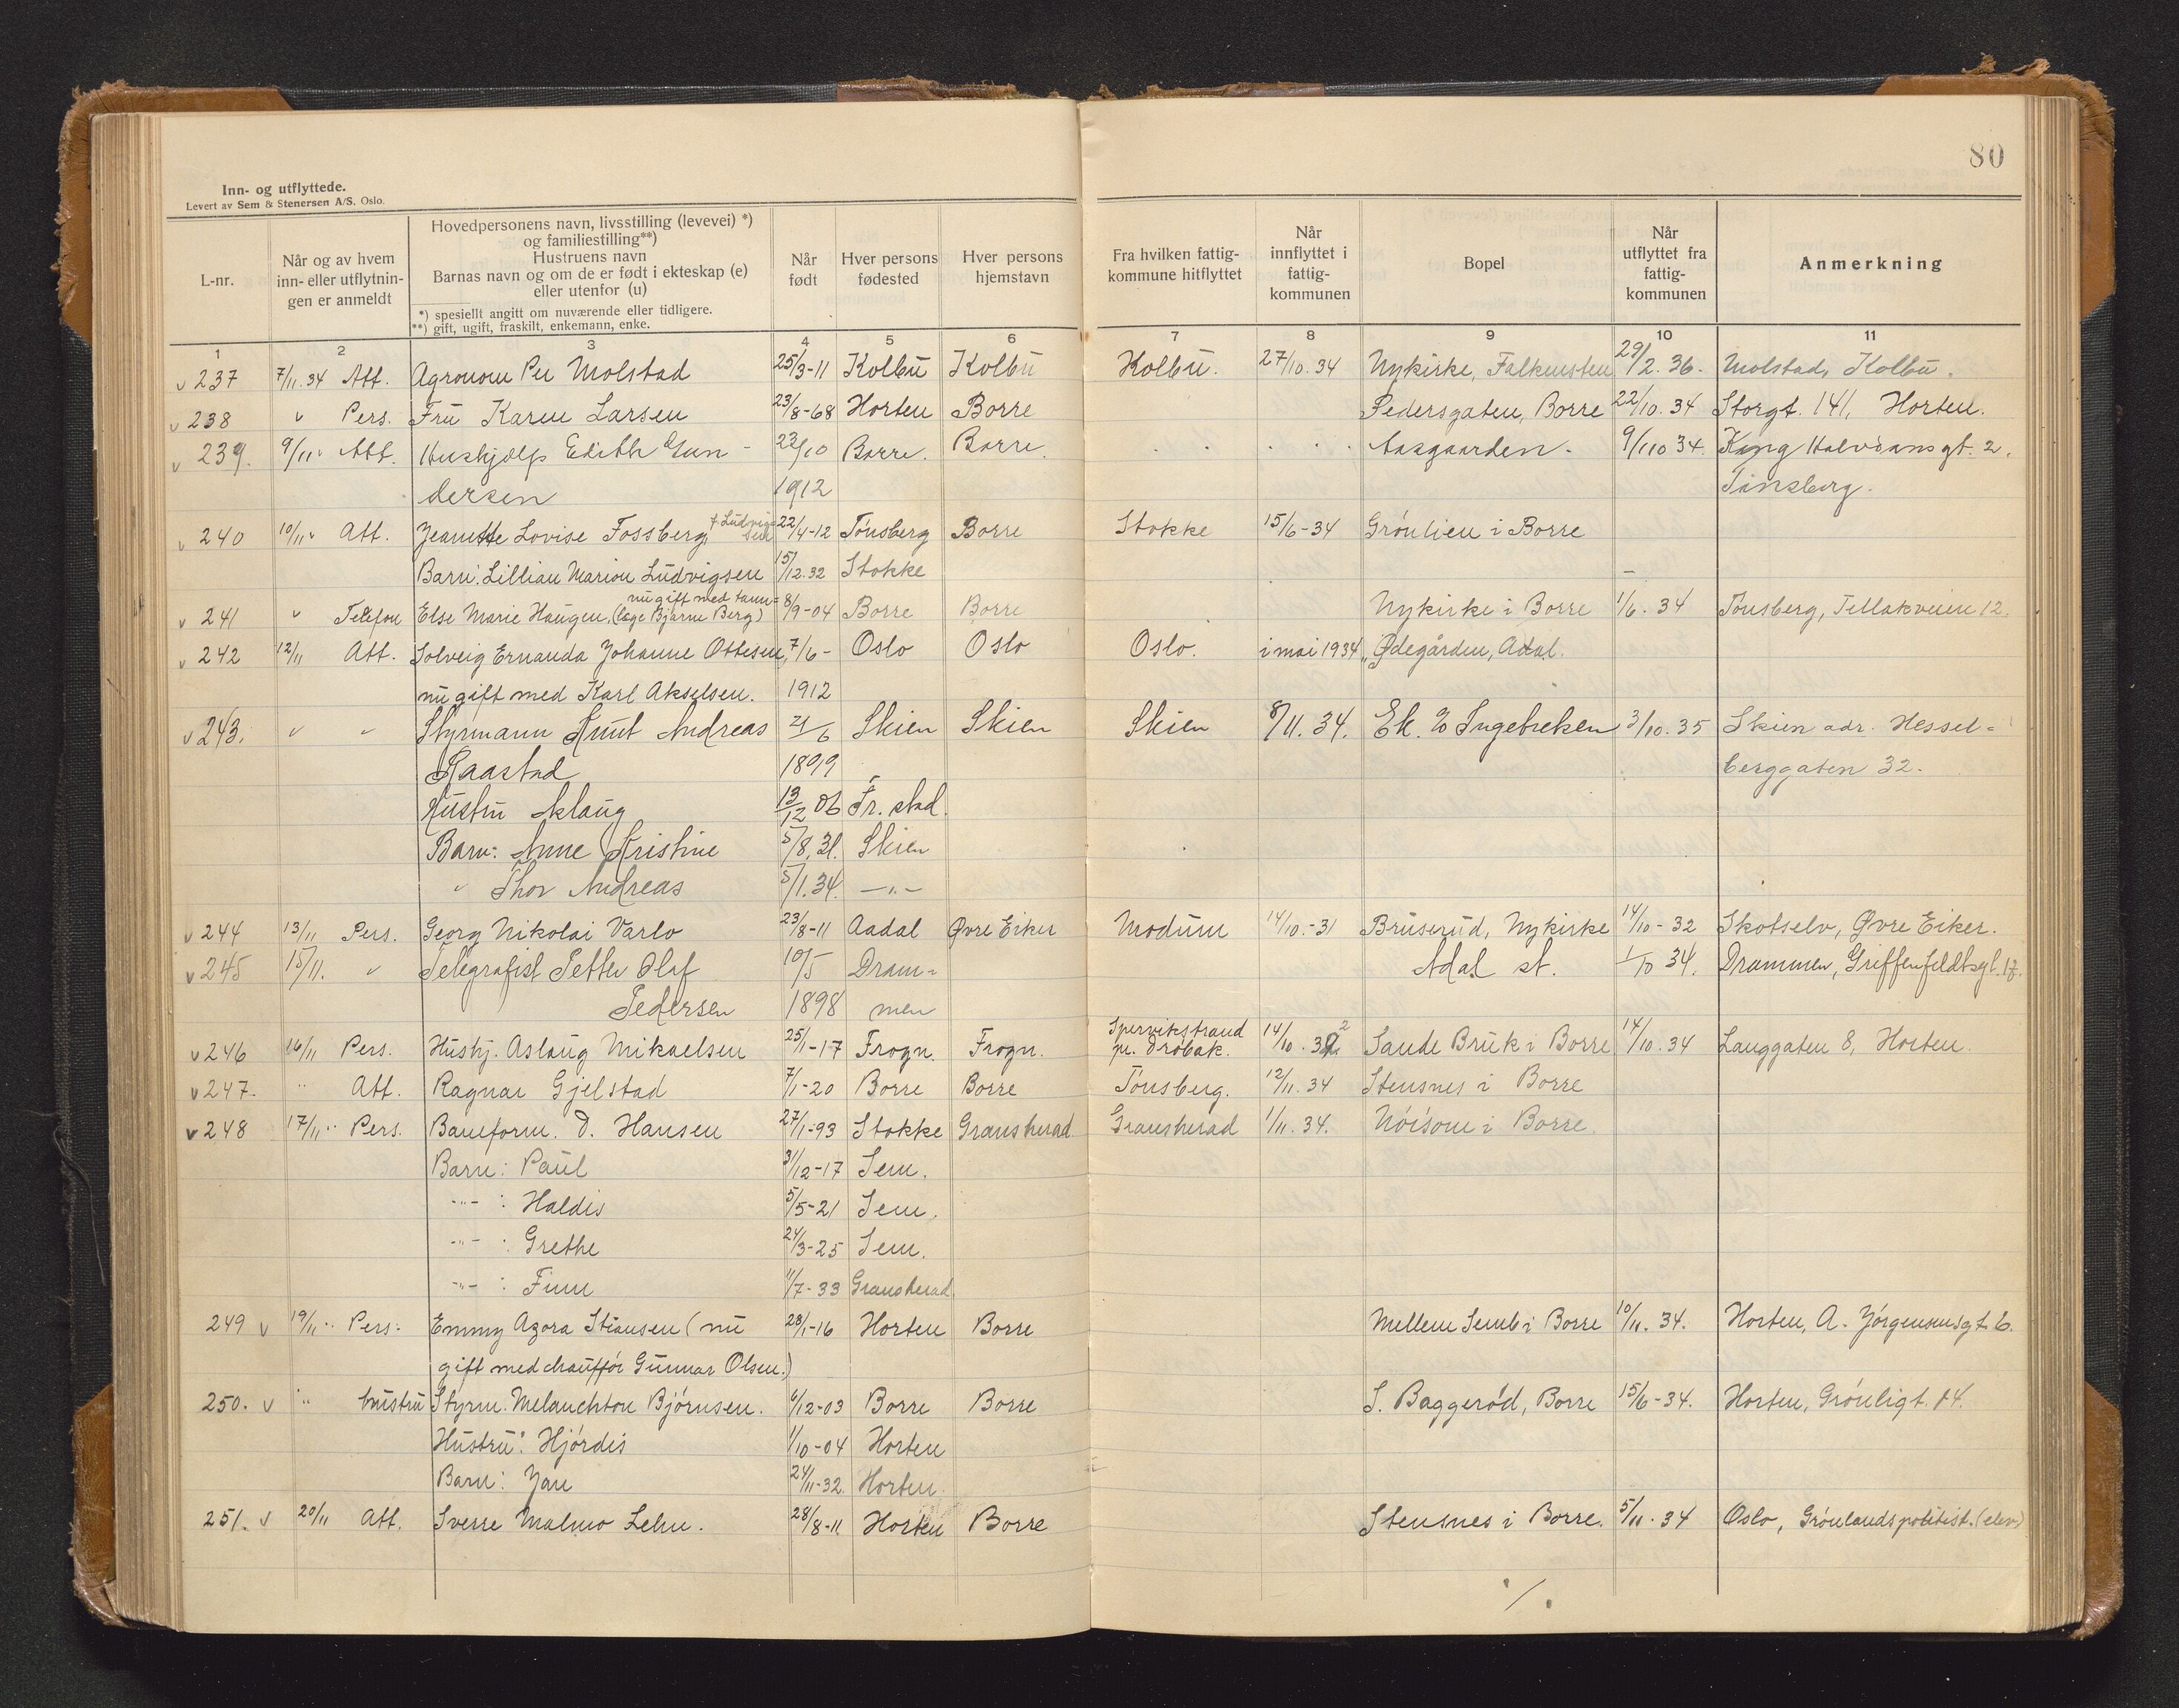 80
Inn- og utflyttede.
Levert av Sem & Stenersen A/S. Oslo.
L-nr.
Når og av hvem
inn- eller utflytnin-
gen er anmeldt
Hovedpersonens navn, livsstilling (levevei) *)
og familiestilling**)
Hustruens navn
Barnas navn og om de er født i ekteskap (e)
eller utenfor (u)
*) spesiellt angitt om nuværende eller tidligere.
**) gift, ugift, fraskilt, enkemann, enke.
Når
født
Hver persons
fødested
Hver persons
hjemstavn
Fra hvilken fattig-
kommune hitflyttet
Når
innflyttet i
fattig-
kommunen
Bopel
Når
utflyttet fra
fattig-
kommunen
Anmerkning
1 2 3 4 5 6 7 8 9 10 11
v 237 7/11.34 Att. Agronom Per Molstad 25/3-11 Kolbu Kolbu Kolbu. 27/10.34 Nykirke, Falkensten 29/2.36. Molstad, Kolbu.
v 238 " Pers. Fru Karen Larsen 23/8-68 Horten Borre Pedersgaten, Borre 22/10.34 Storgt. 141, Horten.
v 239. 9/11 " Att. Hushjælp Edith Gun- 23/10 Borre. Borre. Aasgaarden. 9/110 34. Kong Halvdans gt. 2,
dersen 1912 Tønsberg.
v 240 10/11 " Att. Jeanette Lovise Fossberg, f. Ludvigsen 22/4-12 Tønsberg Borre Stokke 15/6-34 Grønlien i Borre
Barn: Lillian Marion Ludvigsen 15/12.32 Stokke
nu gift med tann-
v 241 " Telefon Else Marie Haugen, (læge Bjarne Berg) 8/9-04 Borre Borre Nykirke i Borre 1/6.34 Tønsberg, Tellakveien 12.
v 242 12/11 Att. Solveig Ernanda Johanne Ottesen, 7/6- Oslo Oslo Oslo. i mai 1934 Ødegården, Adal.
nu gift med Karl Akselsen. 1912
v 243. " " Styrmann Knut Andreas 21/6 Skien Skien Skien 8/11.34. Ek. % Ingebretsen 3/10.35 Skien adr. Hessel=
Raastad 1899 berggaten 32.
Hustru Aslaug 13/12 06 Fr. stad.
Barn: Anne Kristine 5/8.31. Skien
" Thor Andreas 5/1.34. —"—
v 244 13/11 Pers. Georg Nikolai Varlo 23/8-11 Aadal Øvre Eiker Modum 14/10.-31 Bruserud, Nykirke 14/10-32 Skotselv, Øvre Eiker.
v 245 15/11. " Telegrafist Petter Olaf 10/5 Dram= Adal st. 1/10 34. Drammen, Griffenfeldtsgt. 17.
Pedersen 1898 men
v 246 16/11 Pers. Hushj. Aslaug Mikaelsen 25/1-17 Frogn. Frogn. Spervikstrand pr. Drøbak. 14/10.32 Sande Bruk i Borre 14/10.34 Langgaten 8, Horten.
v 247. " Att. Ragnar Gjelstad 7/1-20 Borre Borre Tønsberg. 12/11.34 Stensnes i Borre
v 248 17/11 " Pers. Baneform. D. Hansen 27/1-93 Stokke Gransherad Gransherad 1/11.34. Nøisom i Borre.
Barn: Paul 31/12-17 Sem.
-"- : Haldis 5/5-21 Sem.
-"- : Grethe 24/3-25 Sem.
-"- : Finn 11/7-33 Gransherad
249 v 19/11 " Pers. Emmy Agora Stiansen (nu 28/1-16 Horten Borre Mellem Semb i Borre 10/11.34. Horten, A. Jørgensensgt. 6.
gift med chauffør Gunnar Olsen.)
250. v " hustru Styrm. Melanchton Bjørnsen. 6/12-03 Borre Borre S. Baggerød, Borre 15/6-34. Horten, Grønligt. 14.
Hustru: Hjørdis 1/10-04 Horten
Barn: Jan 24/11-32. Horten.
251. v 20/11 Att. Sverre Malmo Lehn. 28/8-11 Horten Borre Stensnes i Borre. 5/11.34 Oslo, Grønlands politist. (elev)
·/.